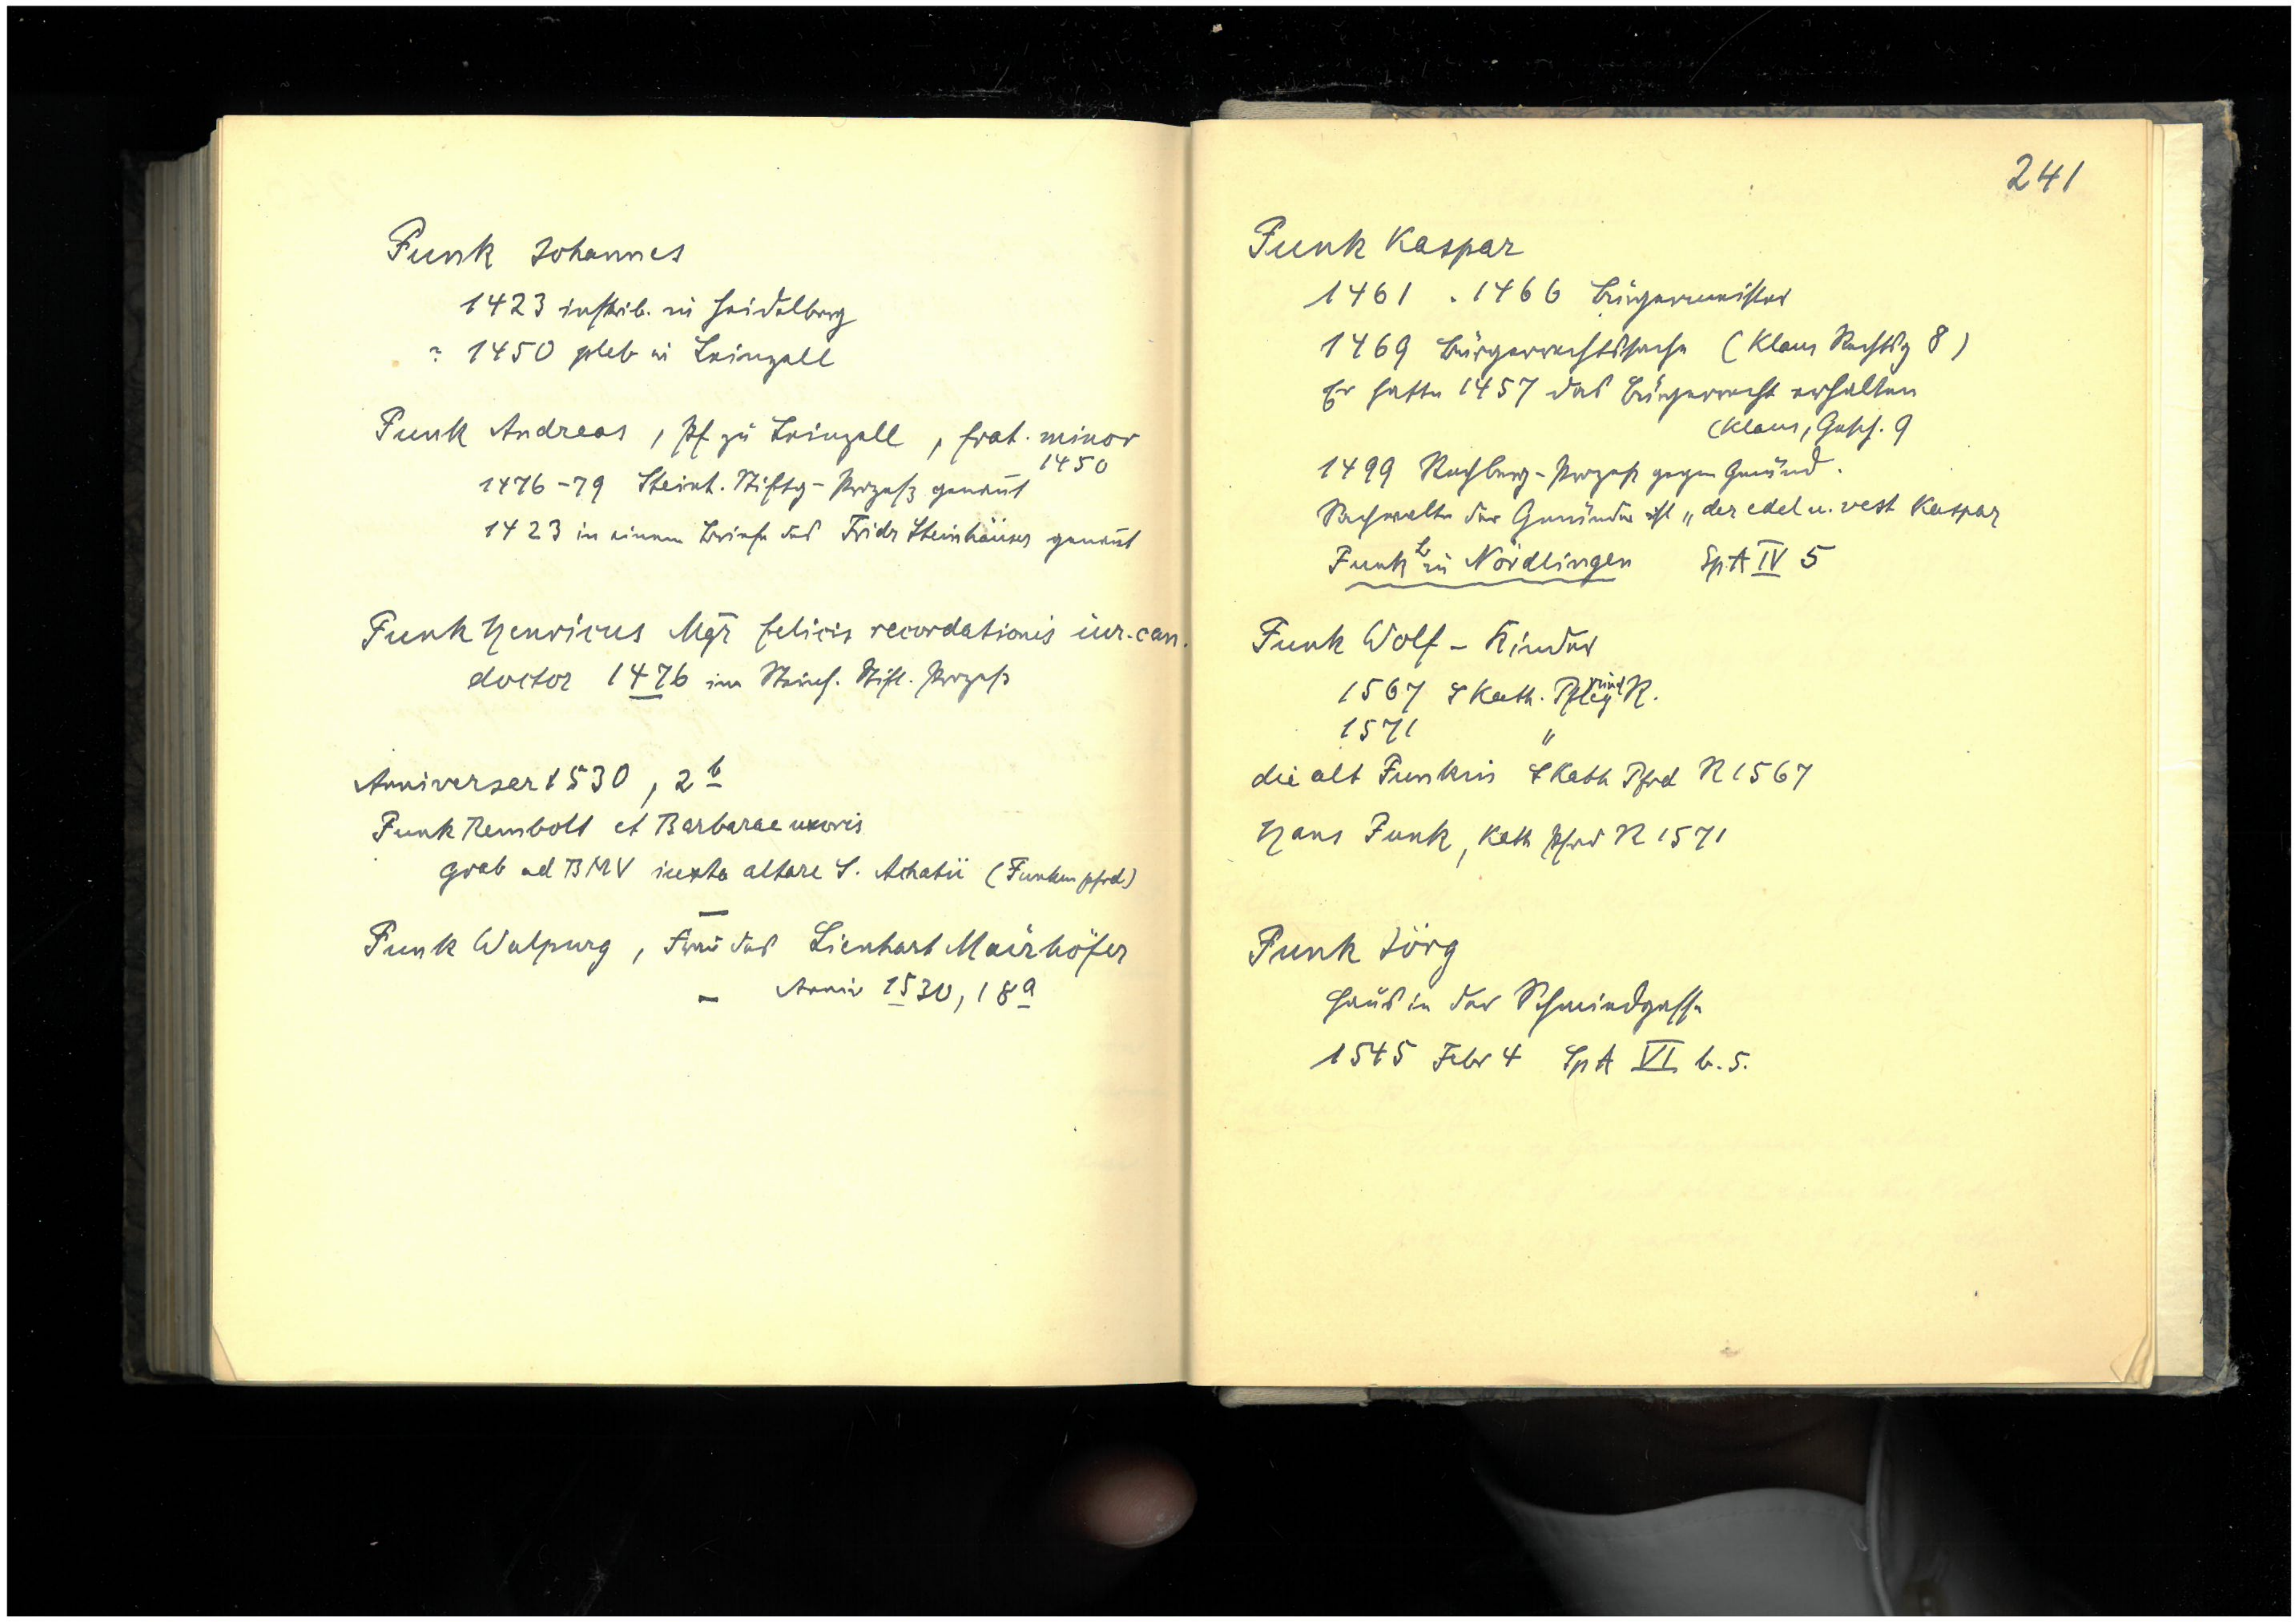 Funk Johannes
1423 inskrib. in Heidelberg
? 1450 pleb in Leinzell
Funk Andreas, Pf. zu Leinzell, frat. minor
1450
1476-79 Steinh. Stiftg-Prozeß genannt
1423 in einem Briefe des Fridr Steinhäuser genannt
Funk Henricus Mgr felicis recordationis iur. can.
doctor 1476 im Steinh. Stift. Prozeß
Anniversar 1530, 2b
Funk Rembolt et Barbarae uxoris
grab ad BMV iuxta altare S. Achatii (Funkenpfrd)
Funk Walpurg, Frau des Lienhart Mairhöfer
– Anniv 1530, 18a
241
Funk Kaspar
1461 . 1466 Bürgermeister
1469 Bürgerrechtssache (Klaus Rechtsg 8)
Er hatte 1457 das Bürgerrecht erhalten
(Klaus, Gesch. 9
1499 Rechberg-Prozeß gegen Gmünd.
Sachwalter der Gmünder ist „der edel u. vest Kaspar
Funk zu Nördlingen SpA IV 5
Funk Wolf – Kinder
1567 S Kath. Pfleg R.
1571 "
die alt Funkin S Kath Pfrd R 1567
Hans Funk, Kath Pfrd R 1571
Funk Jörg
Haus in der Schmiedgasse
1545 Febr 4 SpA VI b. 5.